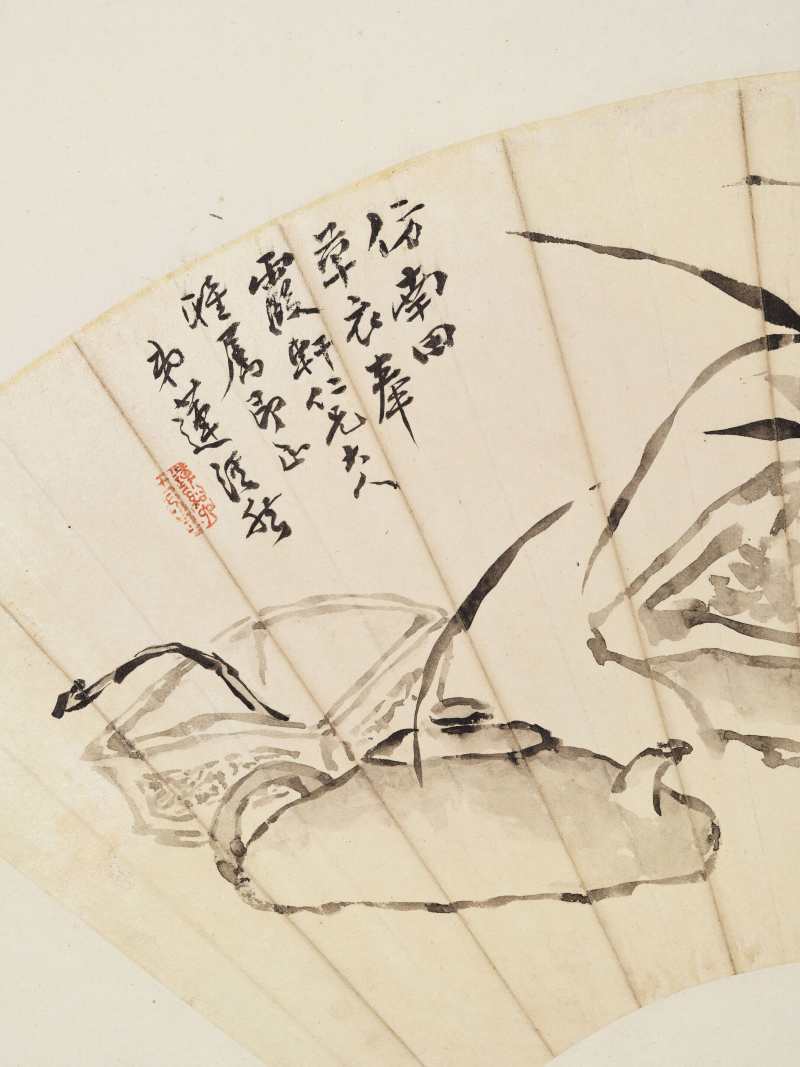 仿南田
草衣奉
霞軒仁兄大人
雅属即正
弟蓮溪